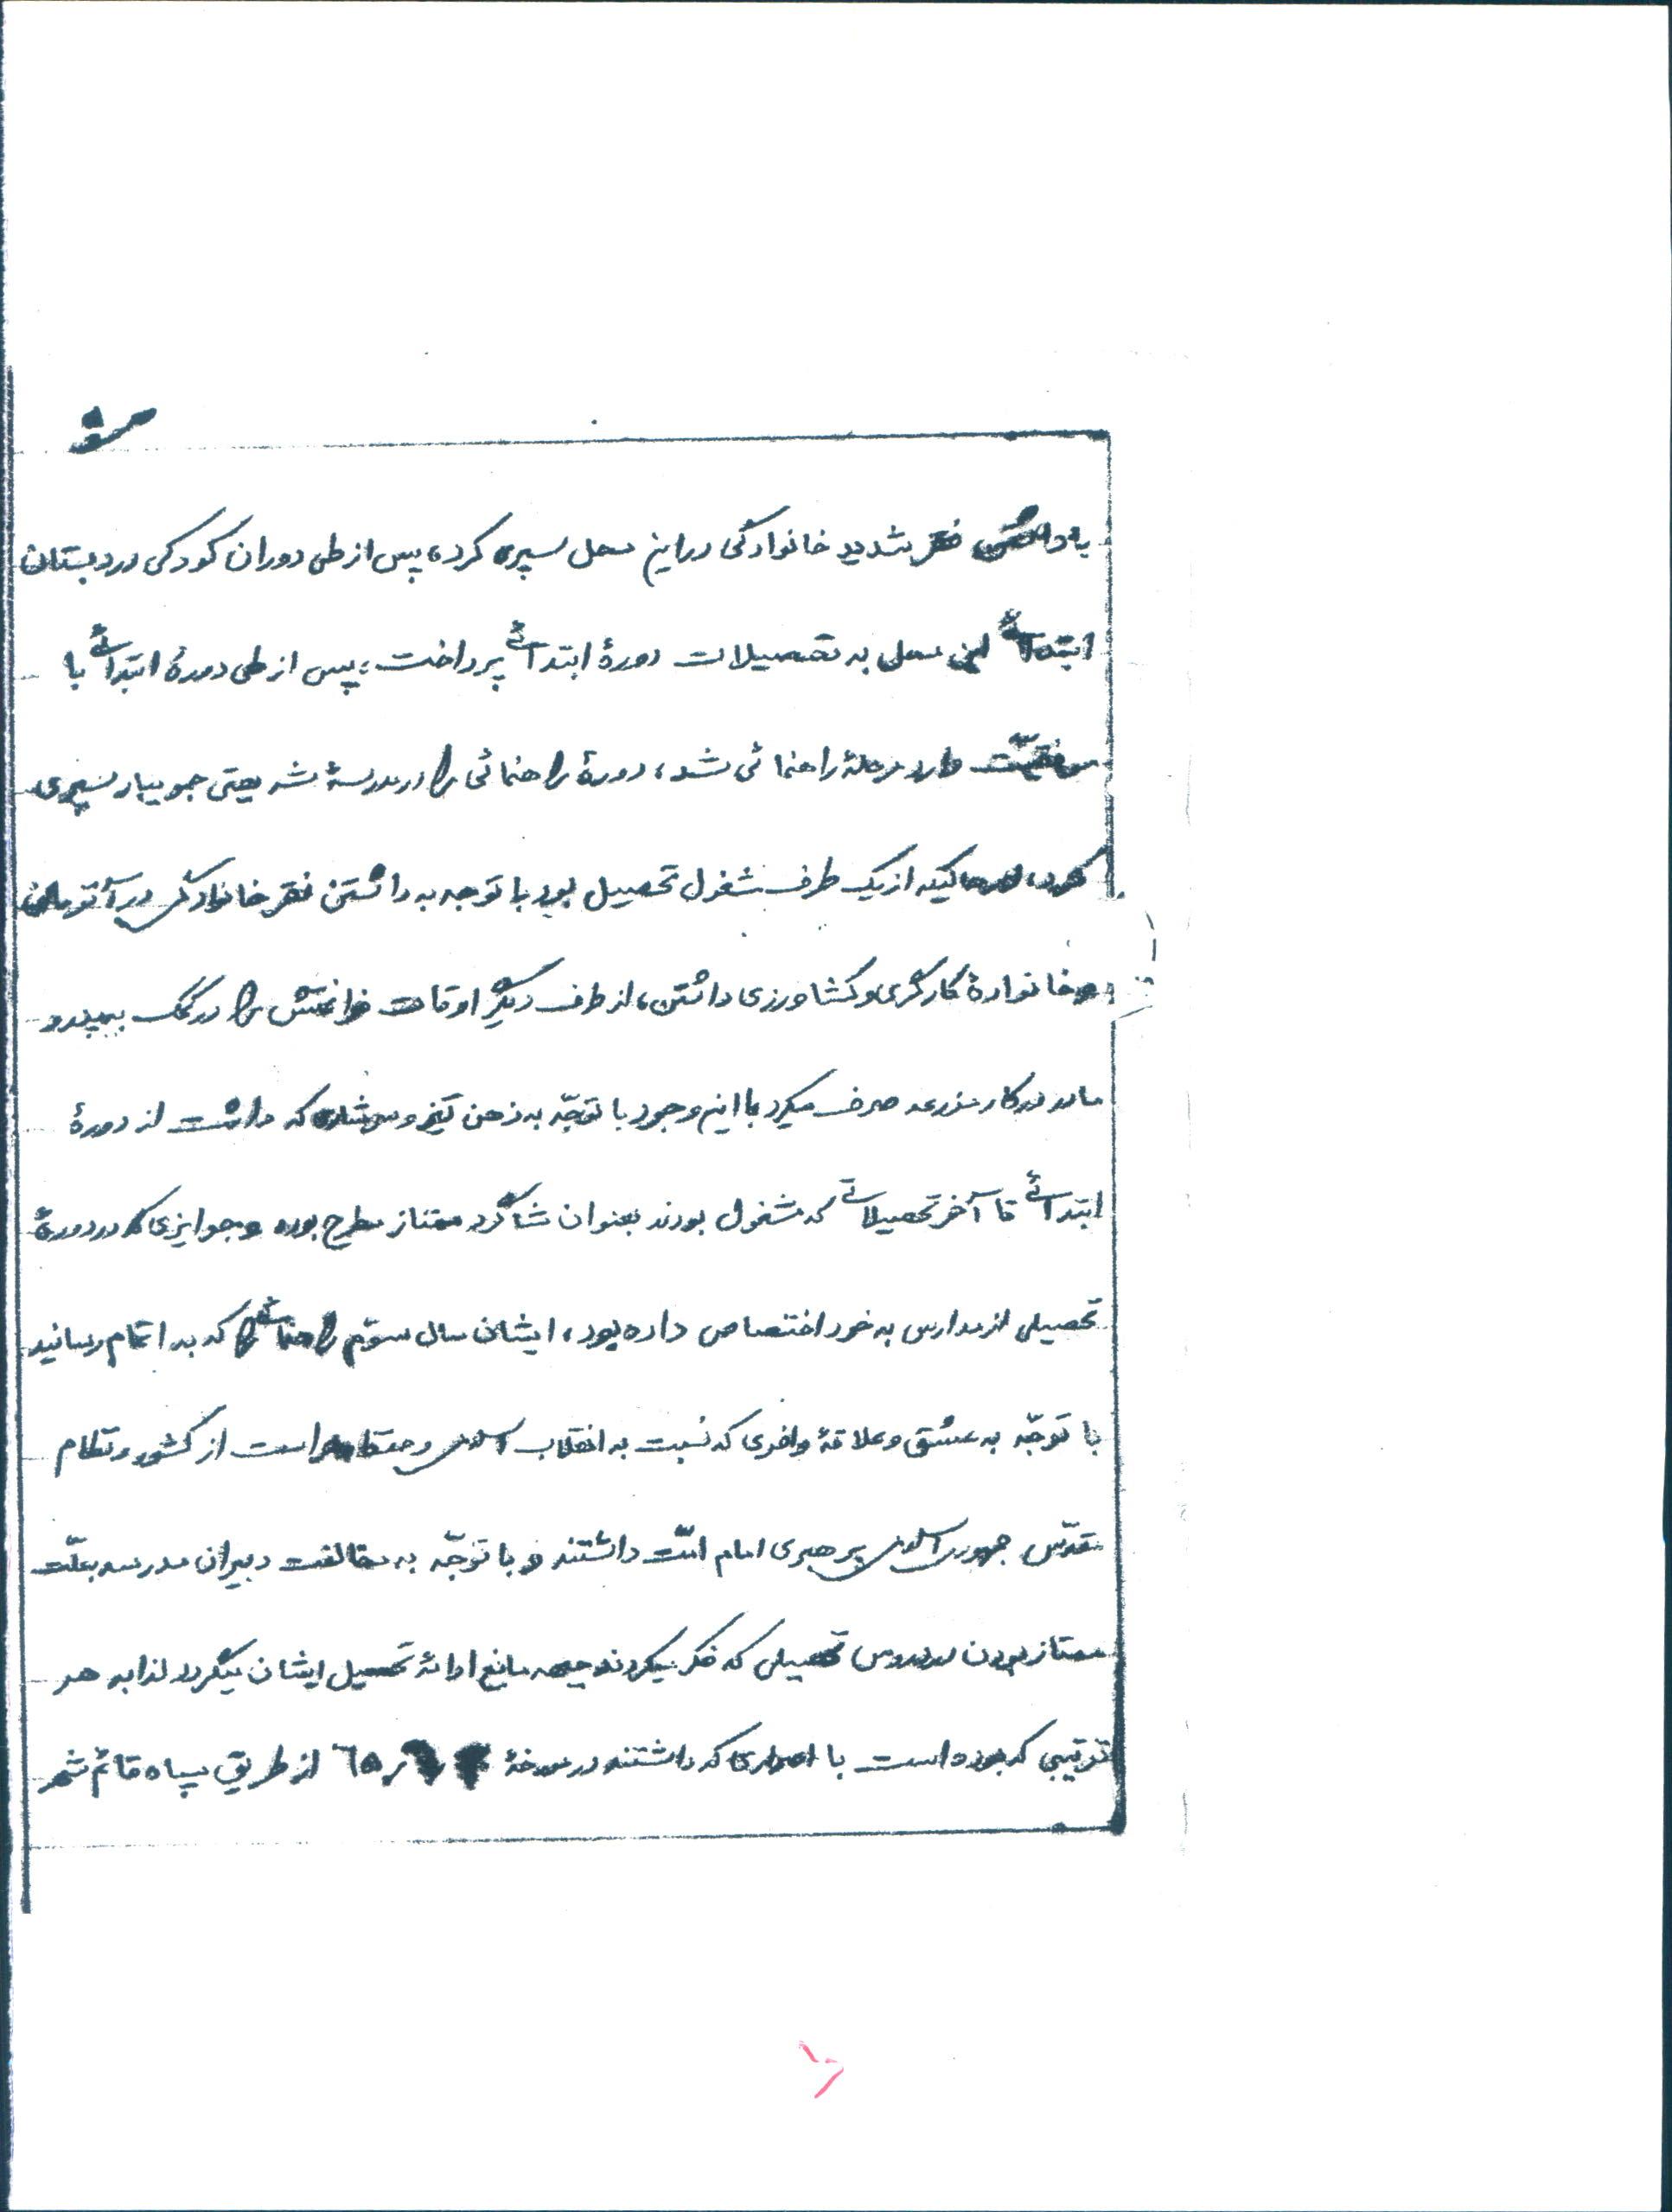 با داشتن فقر شدید خانوادگی در این محل سپری کرد، پس از طی دوران کودکی در دبستان
ابتدائی این محل به تحصیلات دورهٔ ابتدائی پرداخت، پس از طی دورهٔ ابتدائی با
موفقیّت وارد مرحلهٔ راهنمائی شد، دورهٔ راهنمائی را در مدرسهٔ شریعتی جویبار سپری
کرد، در حالیکه از یک طرف مشغول تحصیل بود با توجه به داشتن فقر خانوادگی در آنزمان
و خانوادهٔ کارگری و کشاورزی داشتن، از طرف دیگر اوقات فراغتش را در کمک به پدر و
مادر در کار مزرعه صرف میکرد با این وجود با توجّه به ذهن تیز و که داشت از دورهٔ
ابتدائی تا آخر تحصیلاتی که مشغول بودند بعنوان شاگرد ممتاز مطرح بوده و جوایزی که در دورهٔ
تحصیلی از مدارس به خود اختصاص داده بود، ایشان سال سوّم راهنمائی را که به اتمام رسانید
با توجّه به عشق و علاقهٔ وافری که نسبت به انقلاب اسلامی و حراست از کشور و نظام
مقدّس جمهوری اسلامی برهبری امام امّت داشتند و با توجّه به مخالفت دبیران مدرسه بعلّت
ممتاز بودن در دروس تحصیلی که فکر میکردند جبهه مانع ادامهٔ تحصیل ایشان میگردد لذا به هر
ترتیبی که بوده است با اصراری که داشتند در مورخهٔ ۶۵ از طریق سپاه قائم شهر
۶